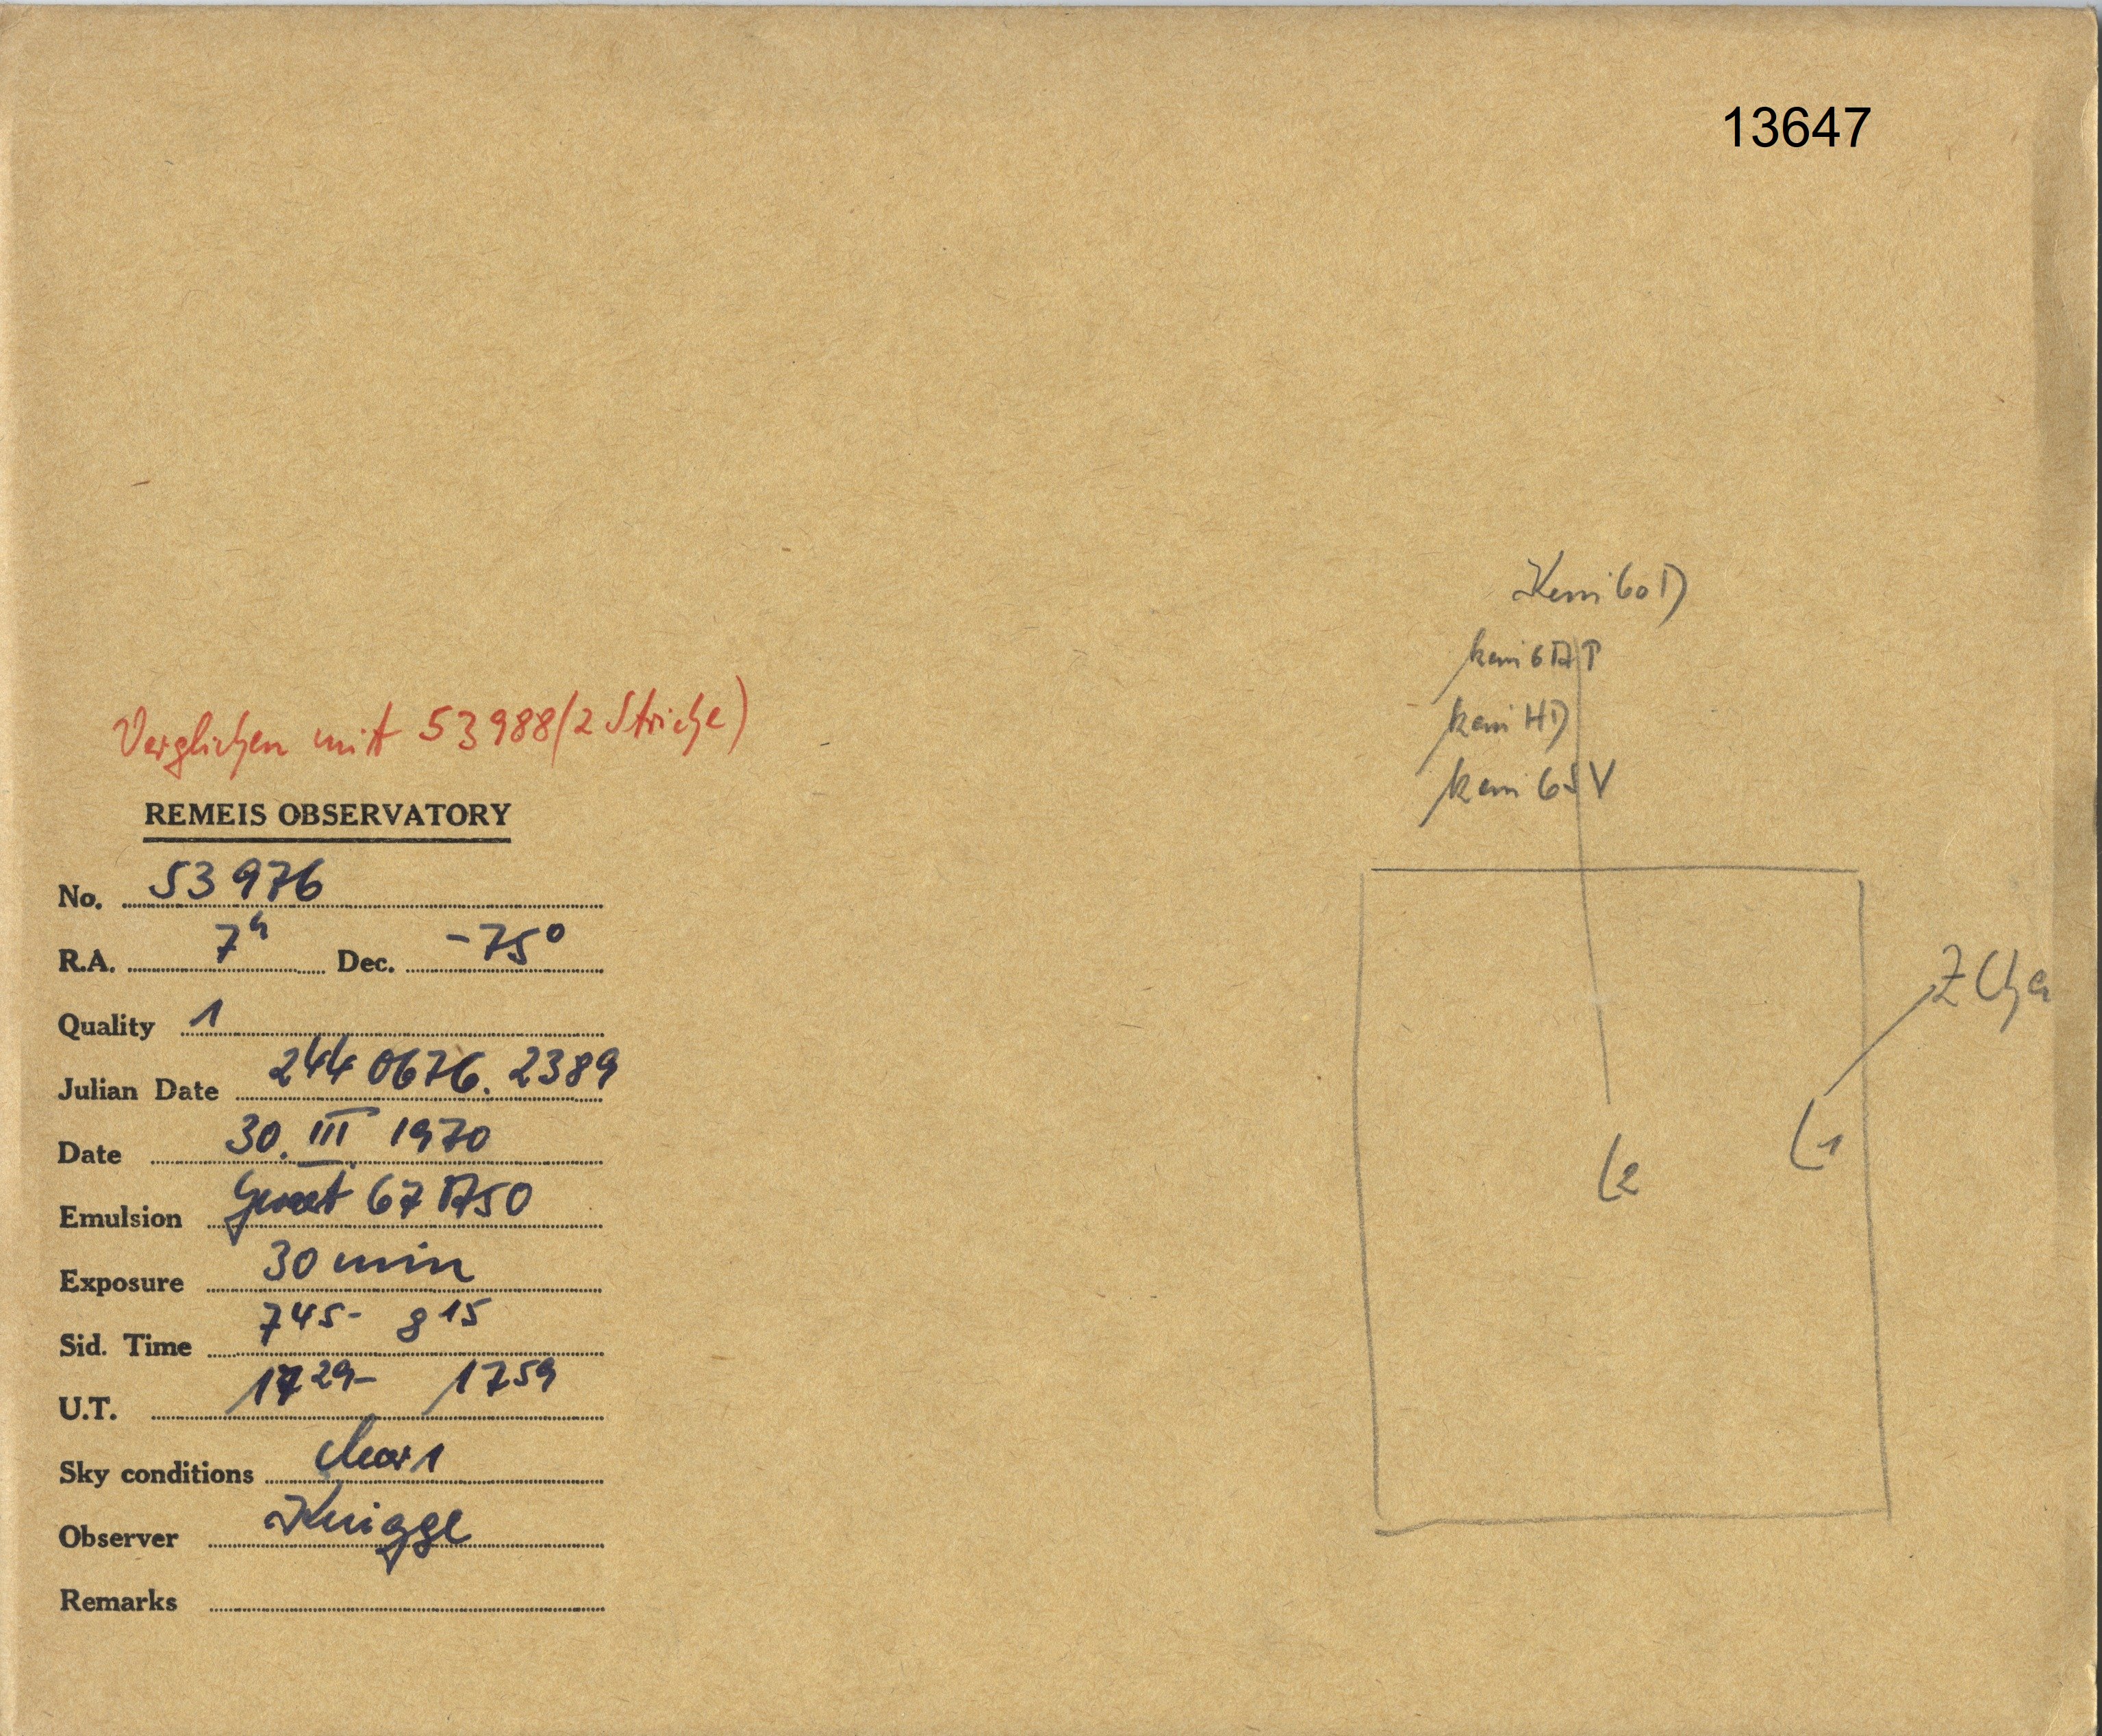 13647
Kein 60 D
kein HD
Verglichen mit 53988 (2 Striche)
kein 6S V
REMEIS OBSERVATORY
No. 53976
R.A. 7h Dec. -75°
Z Cha
Quality 1
Julian Date 244 0676. 2389
Date 30. III 1970
L1
L2
Emulsion Gevaet 67 A50
Exposure 30 min
Sid. Time 7 45 - 8 15
U.T. 17 29 - 17 59
Sky conditions clear 1
Observer Knigge
Remarks